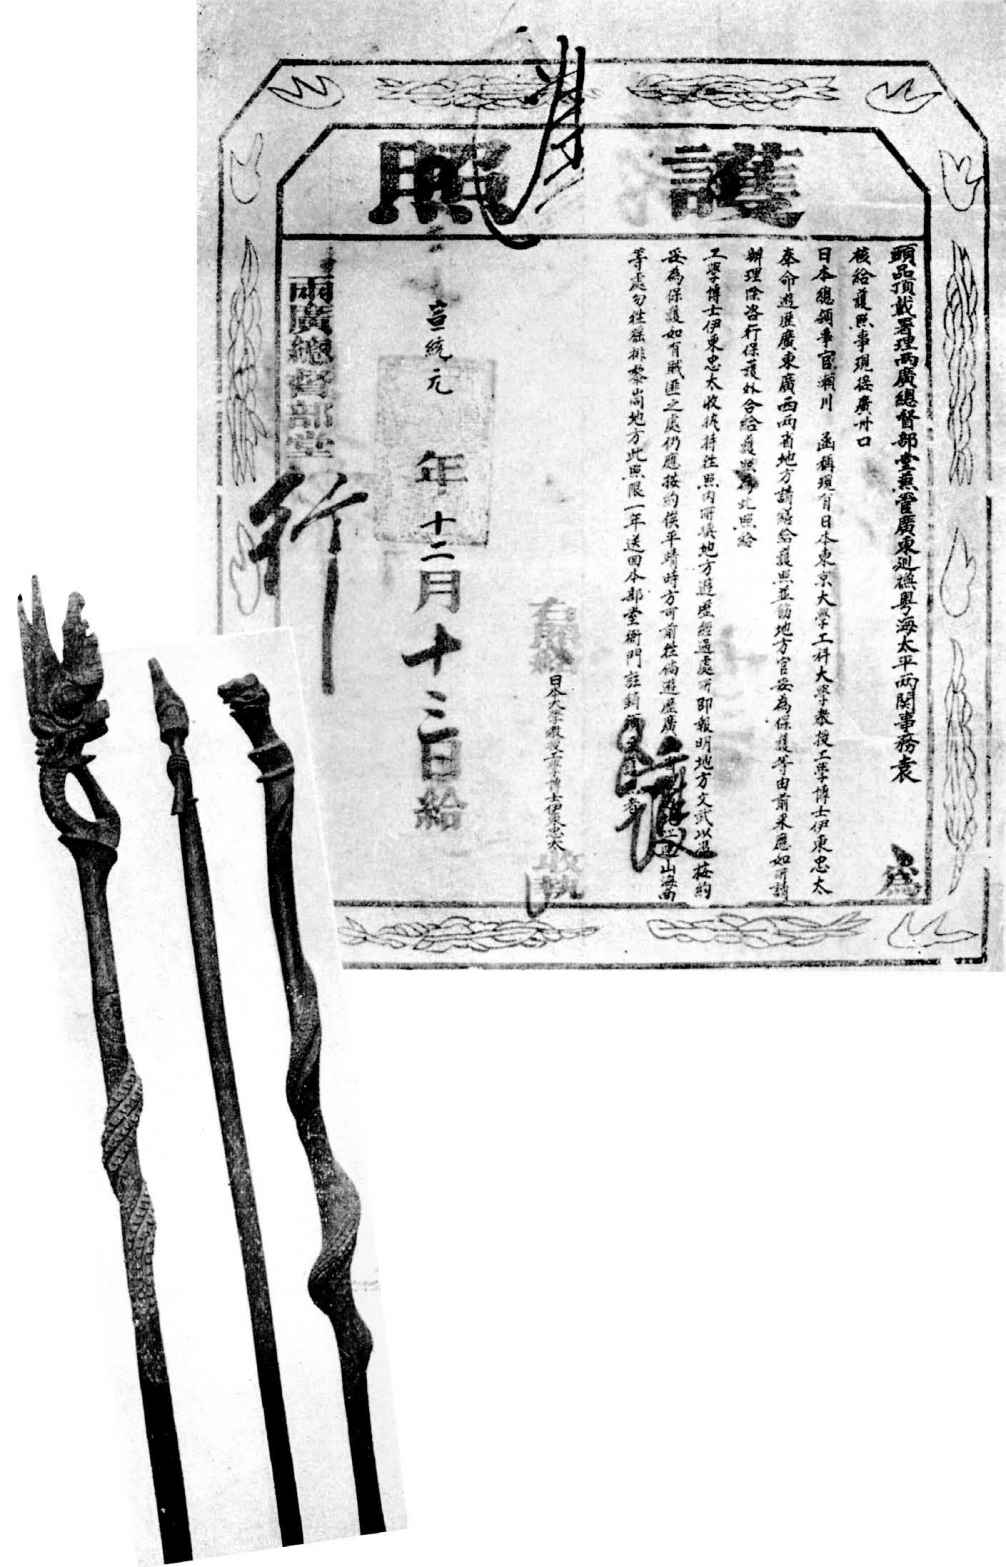 護照
頭品頂戴署理兩廣總督部堂兼管廣東巡撫粤海太平兩關事務袁 為
核給護照事現據廣州口
日本總領事官瀨川 函稱現有日本東京大學工科大學教授工學博士伊東忠太
奉命遊歷廣東廣西兩省地方請繕給護照並飭地方官妥為保護等由前來應如所請
辦理除咨行保護外合給護照為此照給
工學博士伊東忠太收執持往照內所填地方遊歷經過處所即報明地方文武以憑按約
妥為保護如有賊匪之處仍應按約俟平靖時方可前往倘遊歷廣 連山海南
等處勿往猺排黎峝地方此照限一年送回本部堂衙門註銷 者
右照給 日本大學教授工學博士伊東忠太 收執
宣統元年十二月十三日給
兩廣總督部堂
行